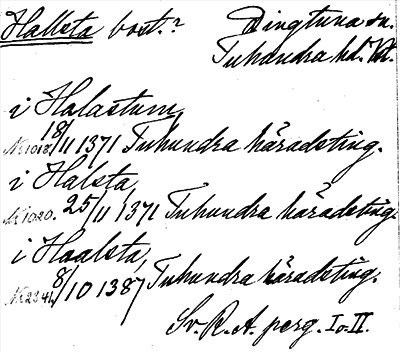 Hallsta bost.? Dingtuna sn.
Tuhundra hd. Vtl.
i Halastum,
Nr 1018. 18/11 1371 Tuhundra häradsting.
i Halsta,
Nr 1020. 25/11 1371 Tuhundra häradsting.
i Haalsta,
Nr 2341. 8/10 1387 Tuhundra häradsting.
Sv. R. A. perg. I o. II.